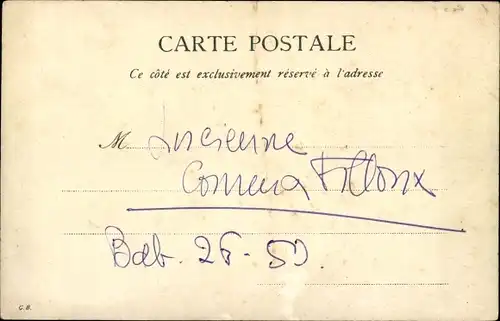 CARTE POSTALE
Ce côté est exclusivement réservé à l'adresse
M. Lucienne
Bab. 26-50.
G. B.